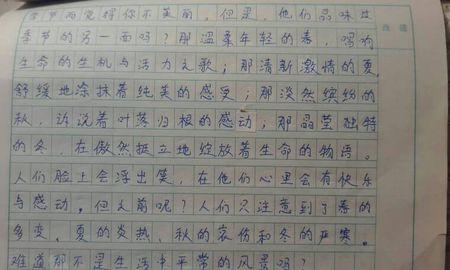 季节而觉得你不美丽,但是,他们品味过
季节的另一面吗?那温柔年轻的春,唱响
生命的生机与活力之歌;那清新激情的夏,
舒缓地涂抹着纯美的感受;那淡然缤纷的
秋,诉说着叶落归根的感动;那晶莹独特
的冬,在傲然挺立地绽放着生命的物语。
人们脸上会浮出笑,在他们心里会有快乐
与感动。但之前呢?人们只注意到了春的
多变、夏的炎热、秋的哀伤和冬的严寒。
难道那不是生活中平常的风景吗?